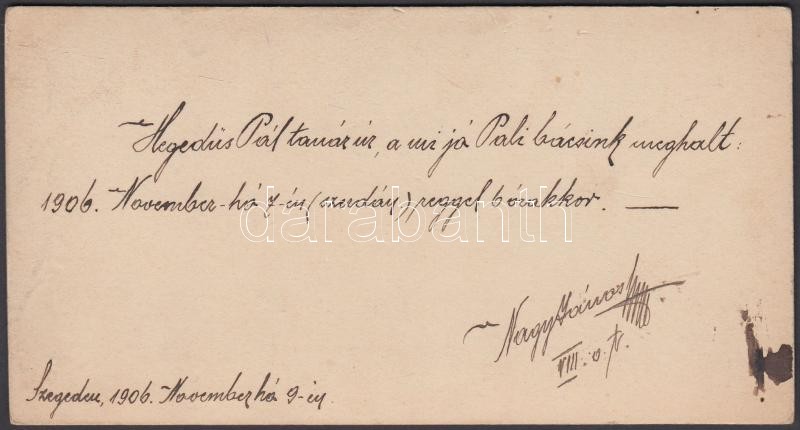 Hegedüs Pál tanár úr, a mi jó Pali bácsink meghalt:
1906. November-hó 7-én (szerdán), reggel 6órakkor. —
darabanth
Nagy János
VIII. o. t.
Szegeden, 1906. November hó 9-én